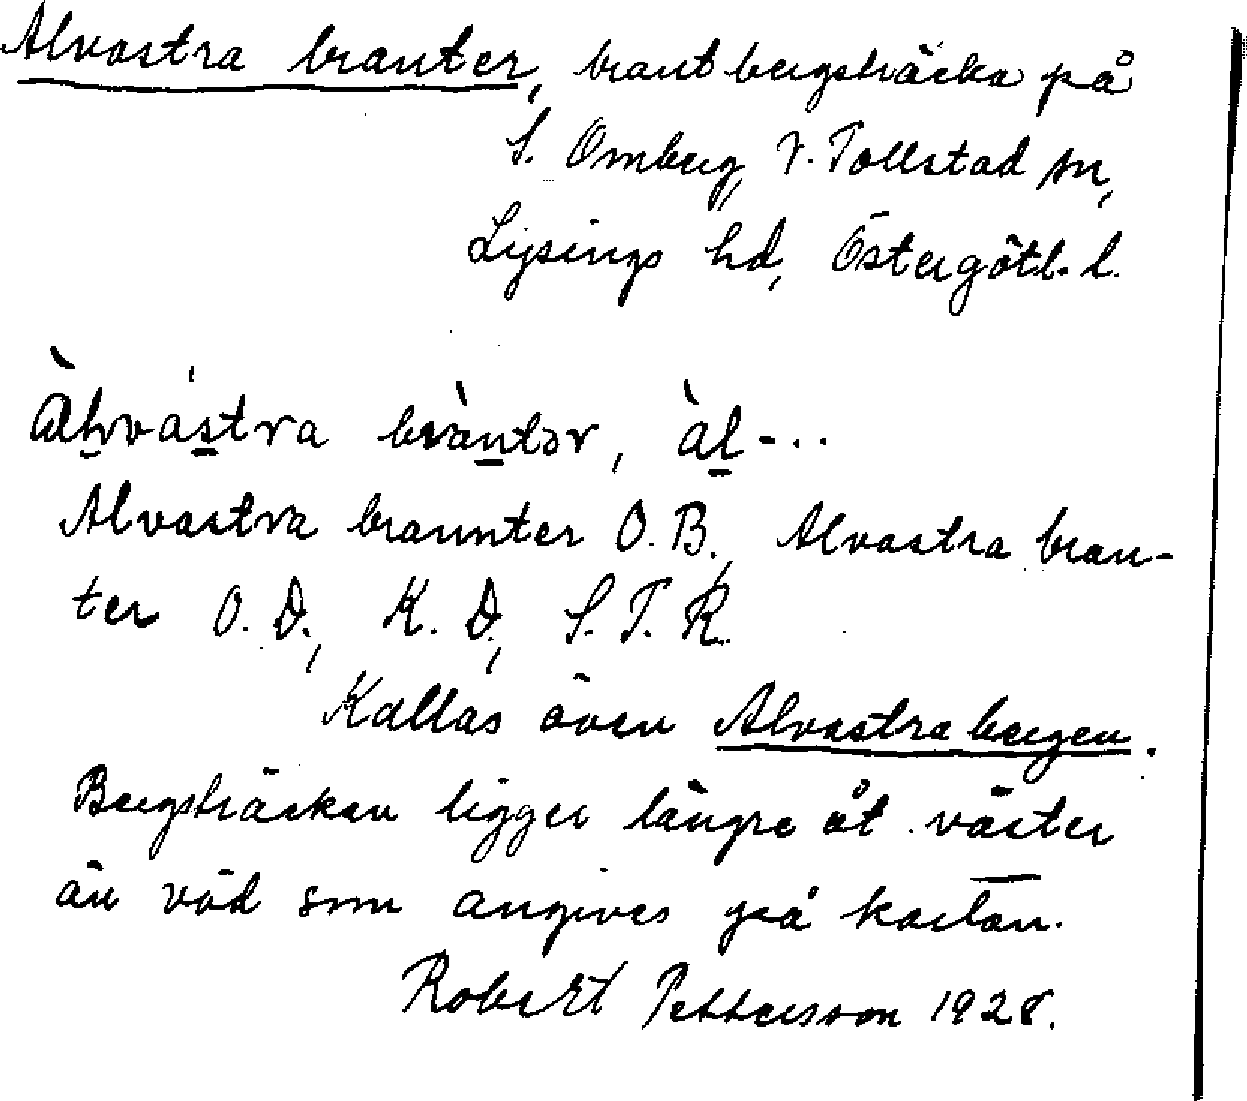 Alvastra branter, brant bergsträcka på
S. Omberg, V. Tollstad sn,
Lysings hd, Östergötl. l.
àl-...
Alvastra brannter O.B., Alvastra bran-
ter O.D., K.D., S.T.R.
Kallas även Alvastrabergen.
Bergsträckan ligger längre åt väster
än vad som angives på kartan.
Robert Pettersson 1928.